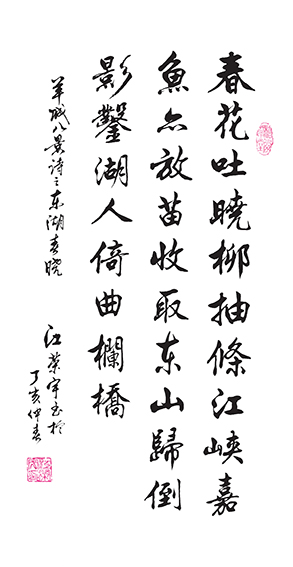 春花吐曉柳抽條江峽嘉
魚亦放苗收取东山歸倒
影鑿湖人倚曲欄橋
羊城八景诗之东湖春晓
江
丁亥仲春